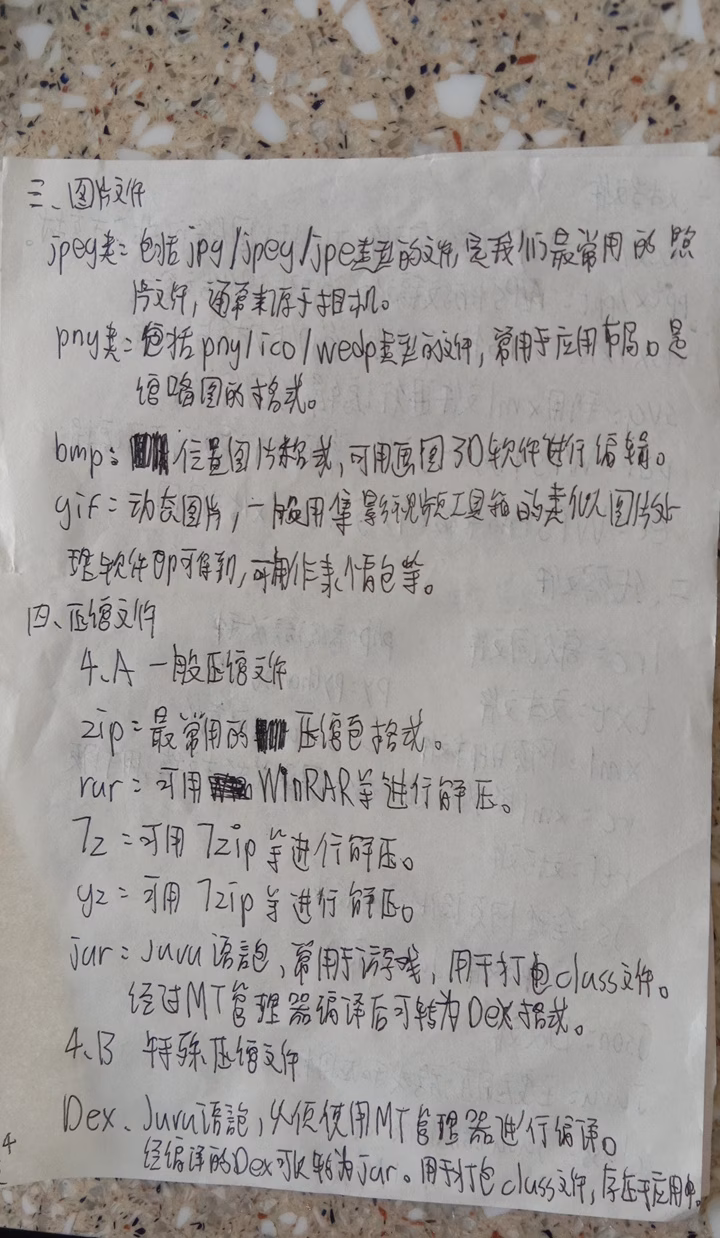 三、图片文件
jpeg类：包括jpg/jpeg/jpe类型的文件，是我们最常用的照
片文件，通常来源于相机。
png类：包括png/ico/wedp类型的文件，常用于应用布局。是
缩略图的格式。
bmp：位置图片格式，可用画图3D软件进行编辑。
gif：动态图片，一般用集影视频工具箱的类似图片处
理软件即可得到，可用作表情包等。
四、压缩文件
4.A 一般压缩文件
zip：最常用的压缩包格式。
rar：可用WinRAR等进行解压。
7z：可用7zip等进行解压。
gz：可用7zip等进行解压。
jar：Java语言包，常用于游戏，用于打包class文件。
经过MT管理器编译后可转为Dex格式。
4.B 特殊压缩文件
Dex、Java语言包，必须使用MT管理器进行编译。
经编译的Dex可以转为jar。用于打包class文件，存在于应用中。
4